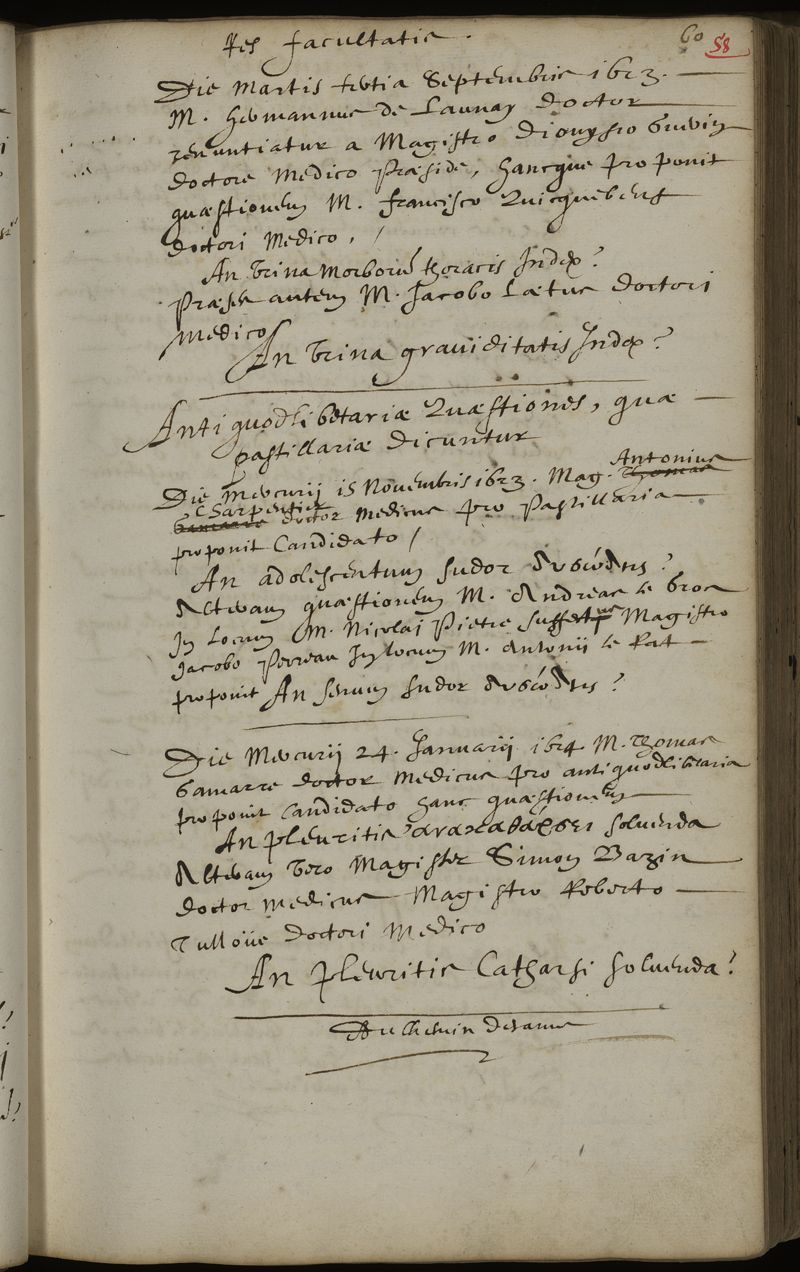 Res facultatis.
60 58
Die Martis tertia Septembris 1623.
M. Hermannus de Launay Doctor
renuntiatur a Magistro Dionysio Guerin
doctore Medico Præside, hancque proponit
quæstionem M. Francisco Quicquebeuf
doctori Medico,
An Vrina Morborum thoracis Index?
Præses autem M. Jacobo Lætus Doctori
Medico
An Vrina grauiditatis Index?
Antiquodlibetariæ Quæstiones, quæ
pastillariæ dicuntur
Antonius
Die Mercurij 15 Nouembris 1623. Mag. Thomas
Charpentier
Gamarre doctor Medicus pro Pastillaria
proponit Candidato
An adolescentum sudor δυσώδης?
Alteram quæstionem M. Andreas le Gros
In Locum M. Nicolai Pietre suffectus Magistro
Jacobo Perreau In locum M. Antonij le Rat
proponit An senum sudor δυσώδης?
Die Mercurij 24. Januarij 1624. M. Thomas
Gamarre doctor Medicus pro antiquodlibetaria
proponit Candidato hanc quæstionem
An pleuritis ἀνακαθάρσει soluenda
Alteram Vero Magister Simon Bazin
doctor Medicus Magistro Roberto
Tulloüe Doctori Medico
An pleuritis Catharsi soluenda?